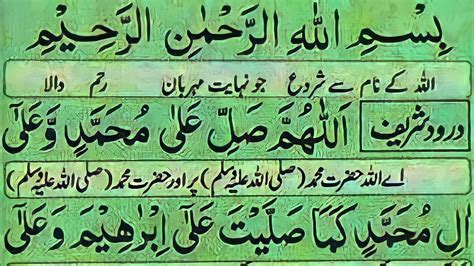 بِسْمِ اللهِ الرَّحْمٰنِ الرَّحِيْمِ
اللہ کے نام سے شروع جو نہایت مہربان رحم والا
درود شریف اَللّٰهُمَّ صَلِّ عَلٰى مُحَمَّدٍ وَّعَلٰٓى
اے اللہ حضرت محمد (صلی اللہ علیہ وسلم) پر اور حضرت محمد (صلی اللہ علیہ وسلم)
اٰلِ مُحَمَّدٍ كَمَا صَلَّيْتَ عَلٰٓى اِبْرٰهِيْمَ وَعَلٰٓى